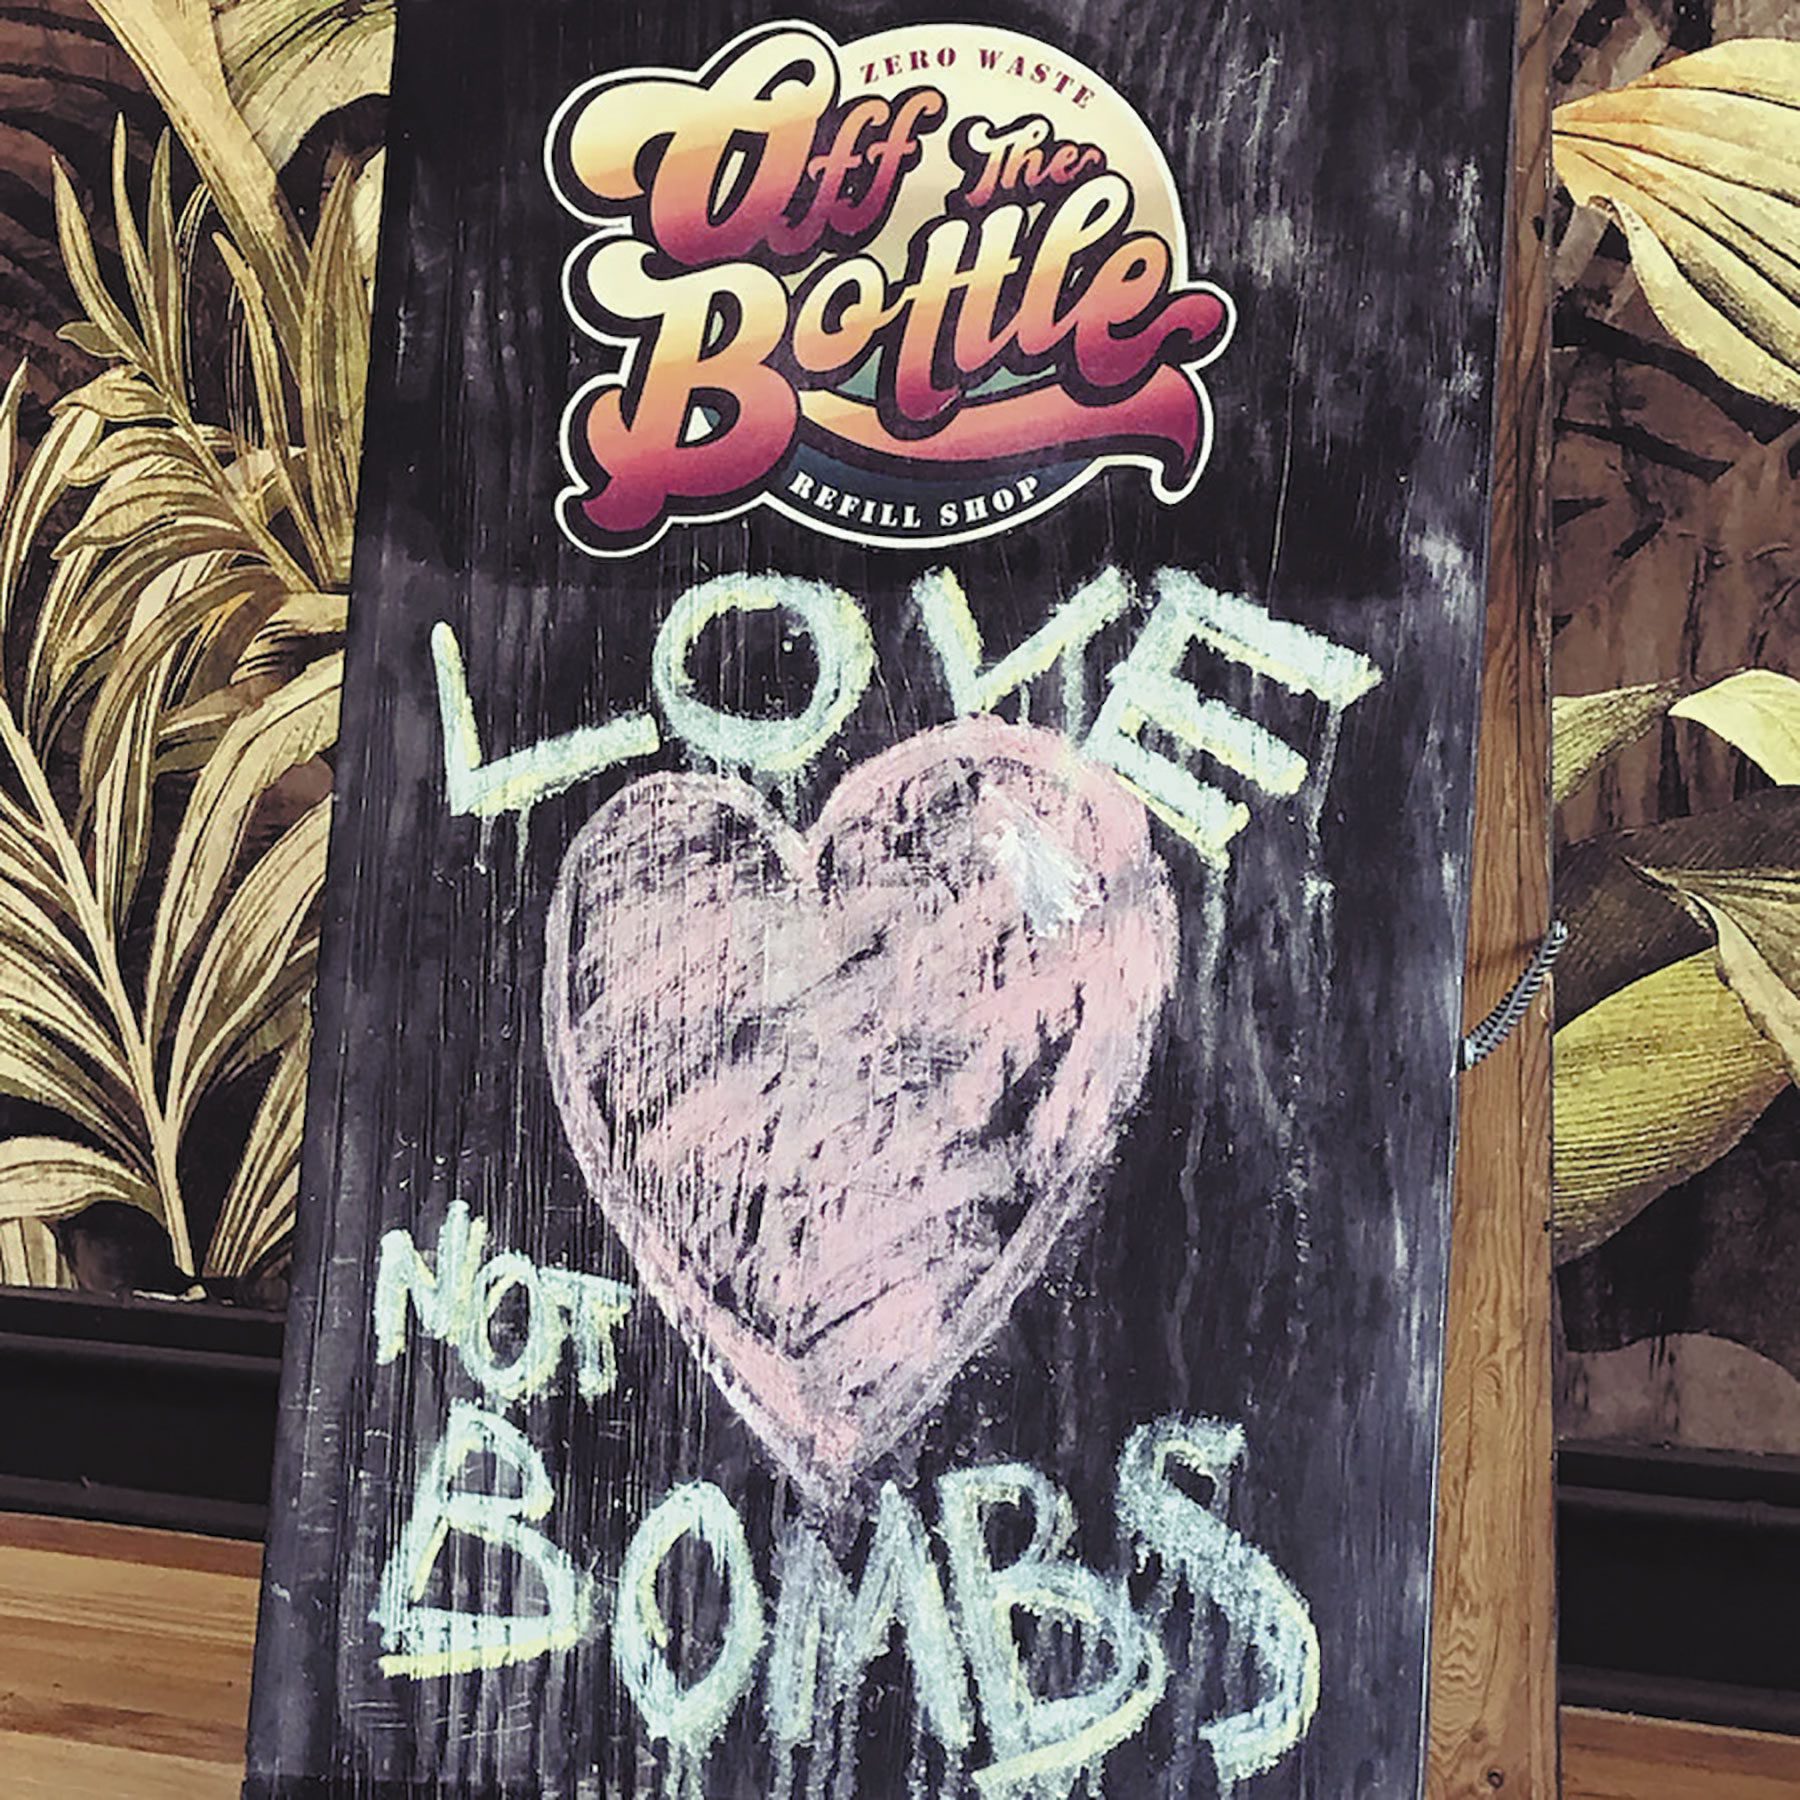 ZERO WASTE
Off The
Bottle
REFILL SHOP
LOVE
NOT
BOMBS